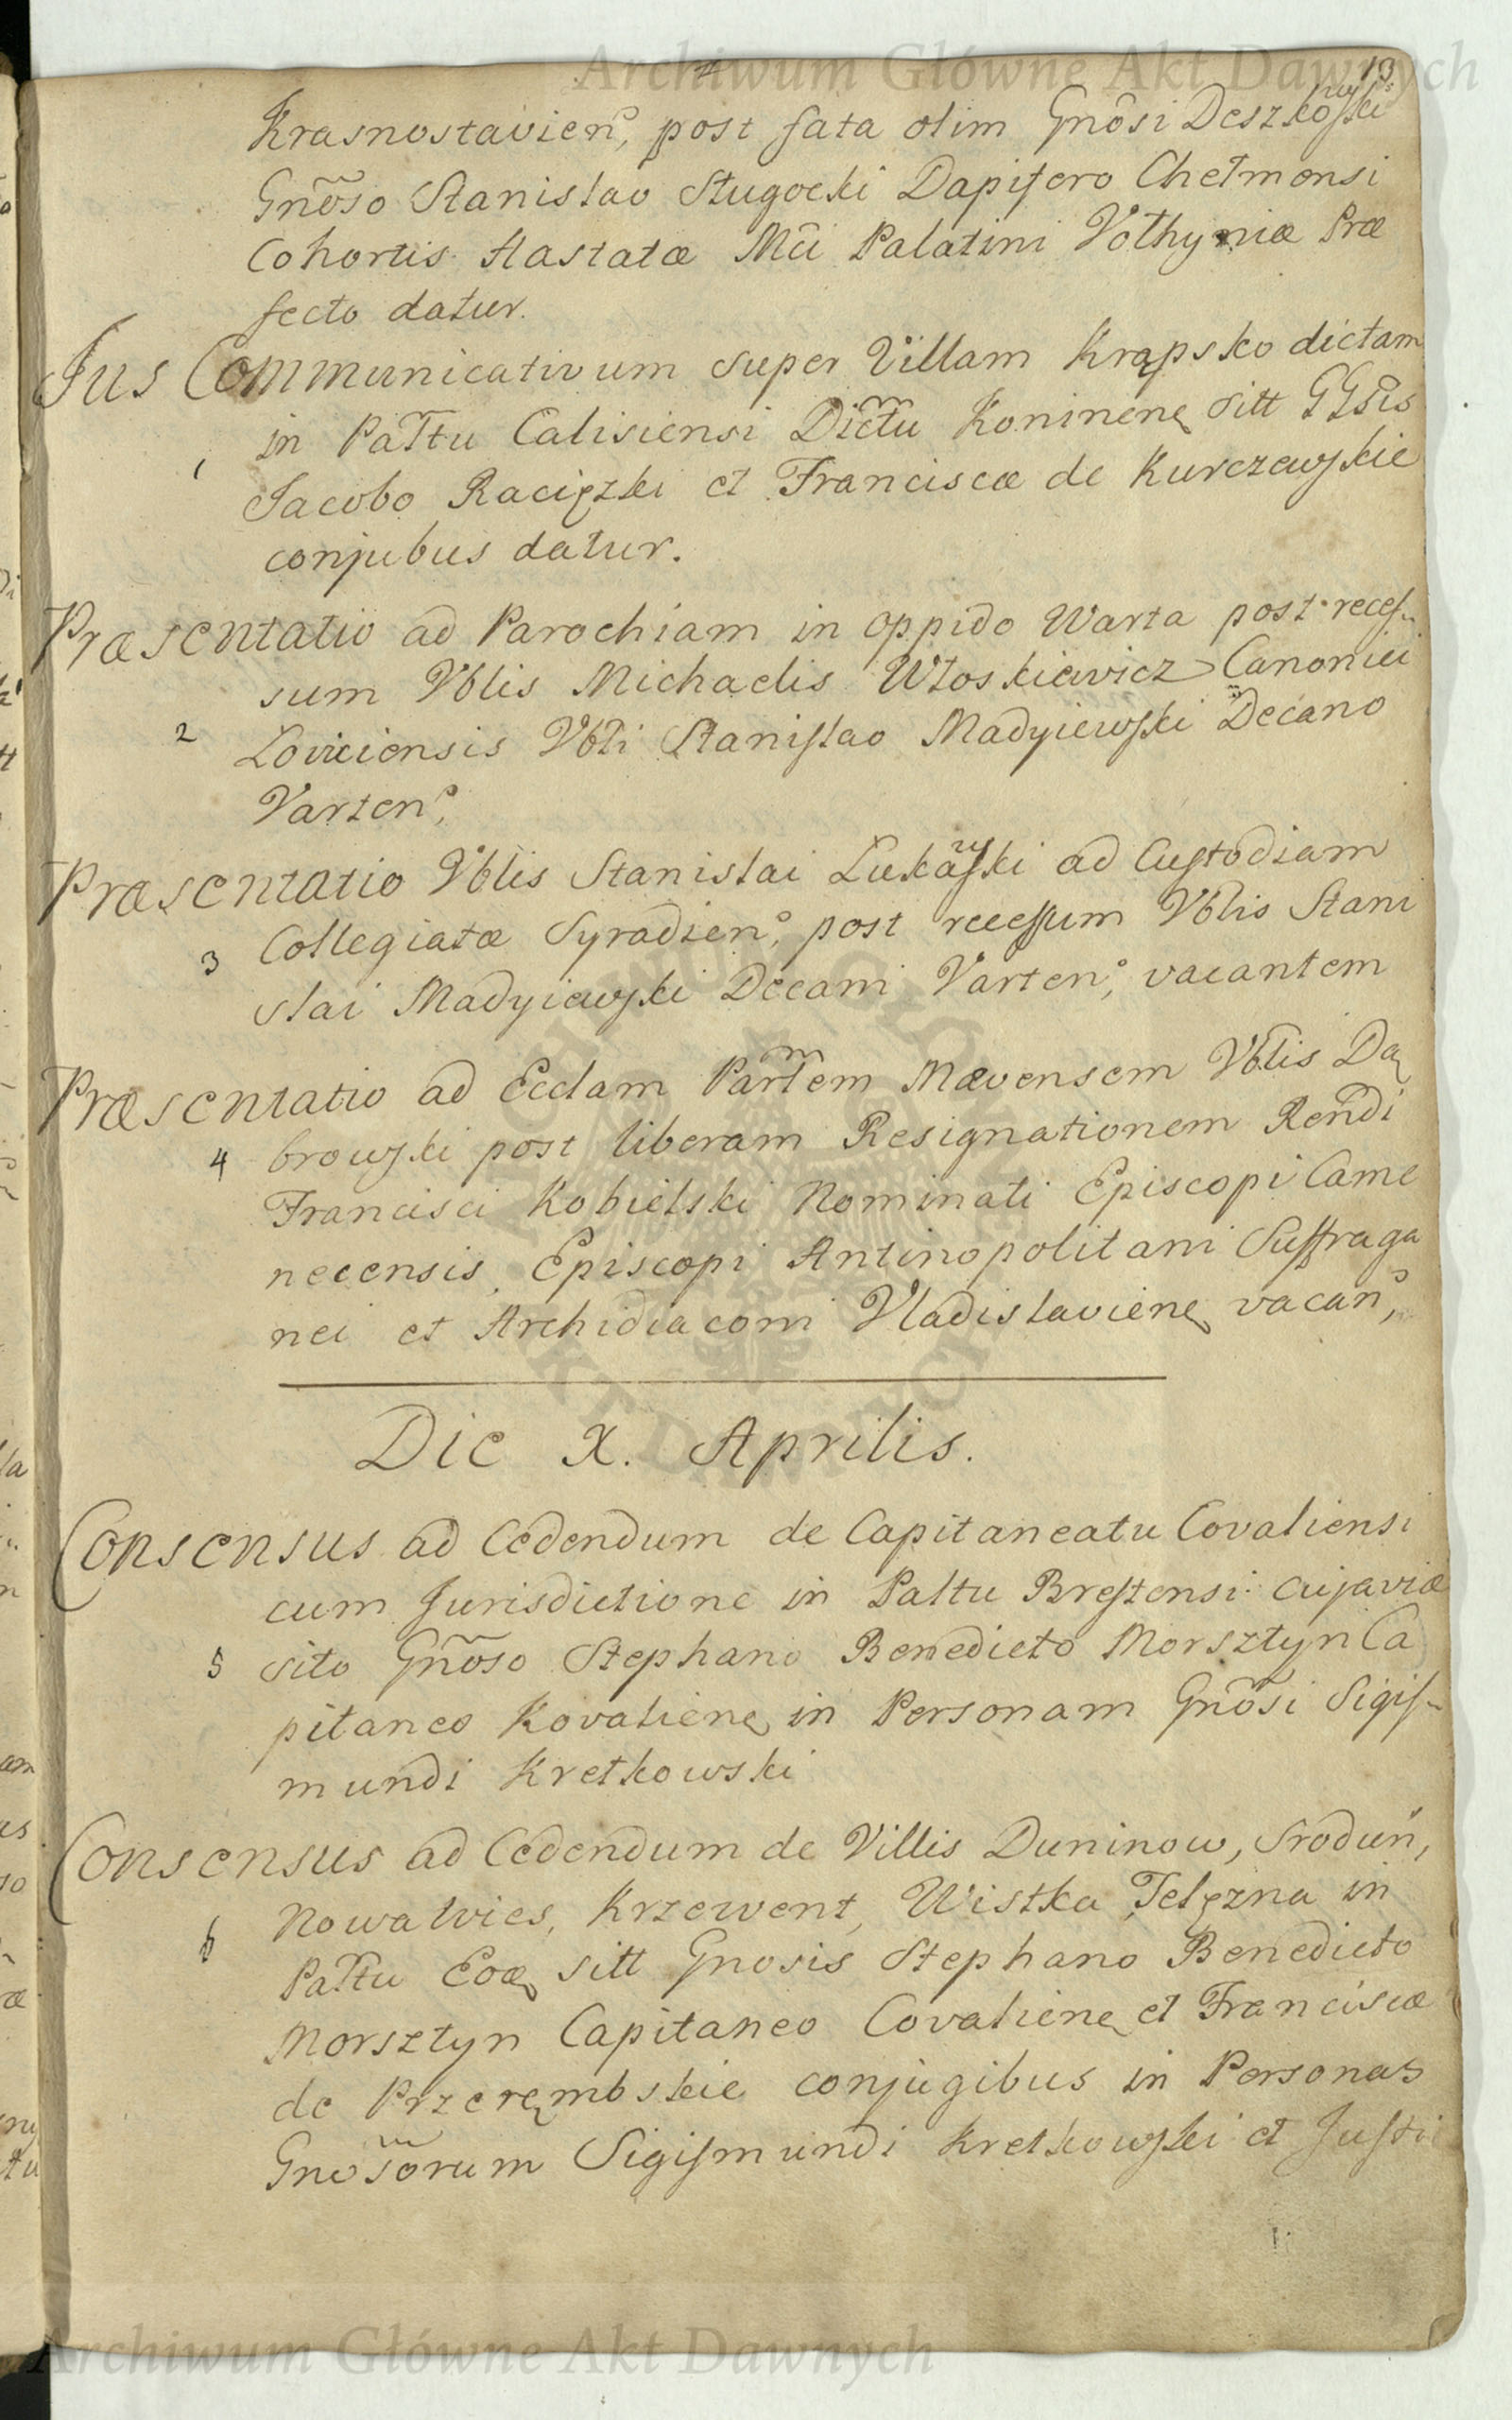 Archiwum Główne Akt Dawnych
13
Krasnostavien, post fata olim Gnõsi Deszkowski
Gnõso Stanislao Sługocki Dapifero Chełmensi
Cohortis Hastatæ Mci Palatini Volhyniæ Præ
fecto datur.
Jus Communicativum super Villam Krąpsko dictam
in Paltu Calisiensi Dictu Koninen sitt GGsis
1 Jacobo Racięzki et Franciscæ de Kurczewskie
conjubus datur.
Præsentatio ad Parochiam in oppido Warta post reces-
sum Vblis Michaelis Włoskiewicz Canonici
2 Loviciensis Vbli Stanislao Madyiewski Decano
Varten,
Præsentatio Vblis Stanislai Lukawski ad Custodiam
3 Collegiatæ Syradien, post recessum Vblis Stani
slai Madyiewski Decani Varten, vacantem
Præsentatio ad Ecclam Partem Mævensem Vblis Dą
4 browski post liberam Resignationem Rendi
Francisci Kobielski Nominati Episcopi Came
necensis, Episcopi Antinopolitani Suffraga
nei et Archidiaconi Vladislavien vacan,
Die X. Aprilis.
Consensus ad Cedendum de Capitaneatu Covaliensi
cum Jurisdictione in Paltu Brestensi Cujaviæ
5 sito Gnõso Stephano Benedicto Morsztyn Ca
pitaneo Kovalien in Personam Gnõsi Sigis-
mundi Kretkowski
Consensus ad Cedendum de Villis Duninow, Srodun,
6 Nowa wies, Krzewent, Wistka Telęzna in
Paltu Eođ sitt Gnosis Stephano Benedicto
Morsztyn Capitaneo Covalien et Franciscæ
de Przerębmskie conjugibus in Personas
Gnosorum Sigismundi Kretkowski et Justi
Archiwum Główne Akt Dawnych